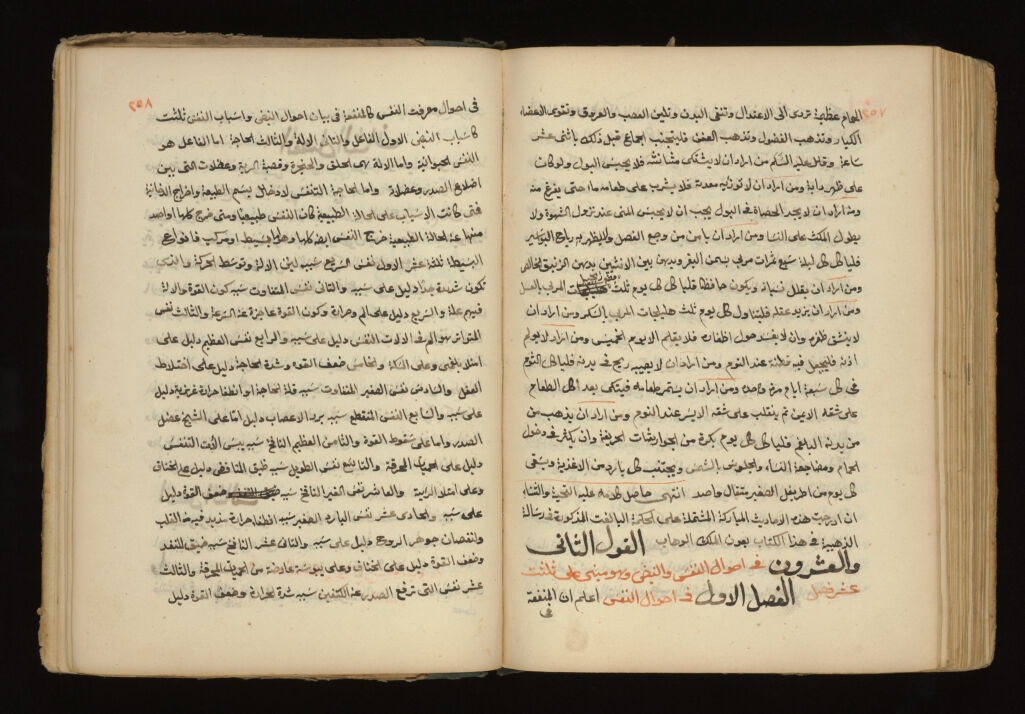 ٢٥٧
الحمام عظيمة تردى الى الاعتدال وتنقى البدن وتلين العصب والعروق وتقوى الاعضاء
الكبار وتذهب الفضول وتذهب العفن فليتجنب الجماع قبل ذلك باثنى عشر
ساعة وقال عليه السلام من اراد ان لا يشتكى مثانته فلا يحبس البول ولو كان
على ظهر دابة ومن اراد ان لا توذيه معدته فلا يشرب على طعامه ماء حتى يفرغ منه
ومن اراد ان لا يجد الحصاة فى البول يجب ان لا يحبس المنى عند نزول الشهوة ولا
يطول المكث على النساء ومن اراد ان يامن من وجع السفل ولا يظهر به رياح البواسير
فلياكل كل ليلة سبع تمرات مربى بسمن البقر ويدهن بين الانثيين بدهن الزنبق الخالص
ومن اراد ان يقلل نسيانه ويكون حافظا فلياكل كل يوم ثلث قطع زنجبيل المربى بالعسل
ومن اراد ان يزيد عقله فليتناول كل يوم ثلث هليلجات المربى بالسكر ومن اراد ان
لا ينشق ظفره وان لا يفسد حول اظفاره فلا يقلم الا يوم الخميس ومن اراد لا يولم
اذنه فليجعل فيه قطنة عند النوم ومن اراد ان لا يصيبه ريح فى بدنه فلياكل الثوم
فى كل سبعة ايام مرة واحدة ومن اراد ان يستمر طعامه فيتكى بعد اكل الطعام
على شقه الايمن ثم ينقلب على شقه الايسر عند النوم ومن اراد ان يذهب من
من بدنه البلغم فلياكل كل يوم بكرة من الجوارشات الحريفة وان يكثر فى دخول
الحمام ومضاجعة النساء والجلوس بالشمس ويجتنب كل بارد من الاغذية ويستقى
كل يوم من اطريفل الصغير مثقال واحد انتهى حاصل كلامه عليه التحية والثناء
ان ادرجت هذه الاحاديث المباركة المشتملة على الحكمة البالغة المذكورة فى رسالة
الذهبية فى هذا الكتاب بعون الملك الوهاب القول الثانى
والعشرون فى اصوال النفس والنبض وهو مبنى على ثلثت
عشر فصل الفصل الاول فى احوال النفس اعلم ان المنفعة
فى
٢٥٨
فى اصوال معرفت النفس كالمنفعة فى بيان احوال النبض واسباب النفس ثلثت
كاسباب النبض الاول الفاعل والثانى الالة والثالث الحاجة اما الفاعل هو
النفس الحيوانية واما الالة هى الحلق والحنجرة وقصبة الرية وعضلات التى بين
اضلاع الصدر وعضلاة واما الحاجة التنفس لادخال نسيم الطبيعة واخراج الدخانية
فمتى كانت الاسباب على الحالة الطبيعية كان النفس طبيعيا ومتى خرج كلها او احد
منها عن الحالة الطبيعية خرج النفس ايضا كلها وهى اما بسيط او مركب فانواع
البسيطة ثلثة عشر الاول نفس السريع سببه لين الالة وتوسط الحركة والذى
تكون شديدة جدا دليل على سببه والثانى نفس المتفاوت سببه كون القوة والالة
فيهم علة والسريع دليل على الم وحرارة وكون القوة عاجزة عن السرعة والثالث نفس
المتواتر هو الم فى الالات النفس دليل على سببه والرابع نفس العظيم دليل على
امتلا بلغمى وعلى السكتة والخامس ضعف القوة وشدة الحاجة دليل على اختلاط
العقل والسادس نفس الصغير المتفاوت سببه قلة الحاجة او انطفا حرارة غريزية دليل
على سببه والسابع النفس المنقطع سببه برد الاعصاب دليل اما على التشنج عضل
الصدر واما على سقوط القوة والثامن العظيم النافخ سببه يبس الات التنفس
دليل على الحميات المحرقة والتاسع نفس الطويل سببه ضيق المنافض دليل على الخناق
وعلى امتلا الرية والعاشر نفس القير النافخ سببه ضعف القوة دليل
على سببه والحادى عشر نفس البارد الصغير سببه انطفا حرارة شديد فيه القلب
وانقصان جوهر الروح دليل على سببه والثانى عشر النافخ سببه ضيق المنفذ
وضعف القوة دليل على الخناق وعلى يبوسة عارضة من الحميات المحرقة والثالث
عشر نفس التى ترفع الصدر عند الكتفين سببه شدة الحرارة وضعف القوة دليل